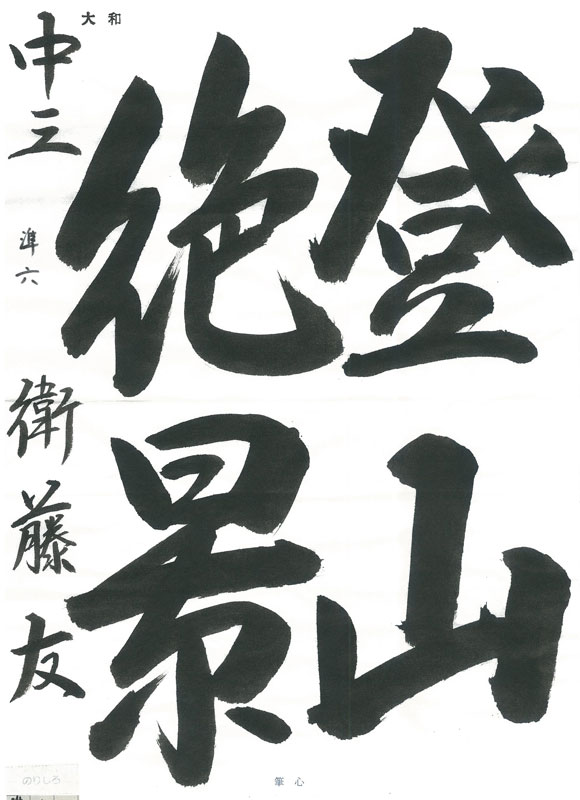 登山
絶景
大和
中三
準六
衛藤友
のりしろ
筆心